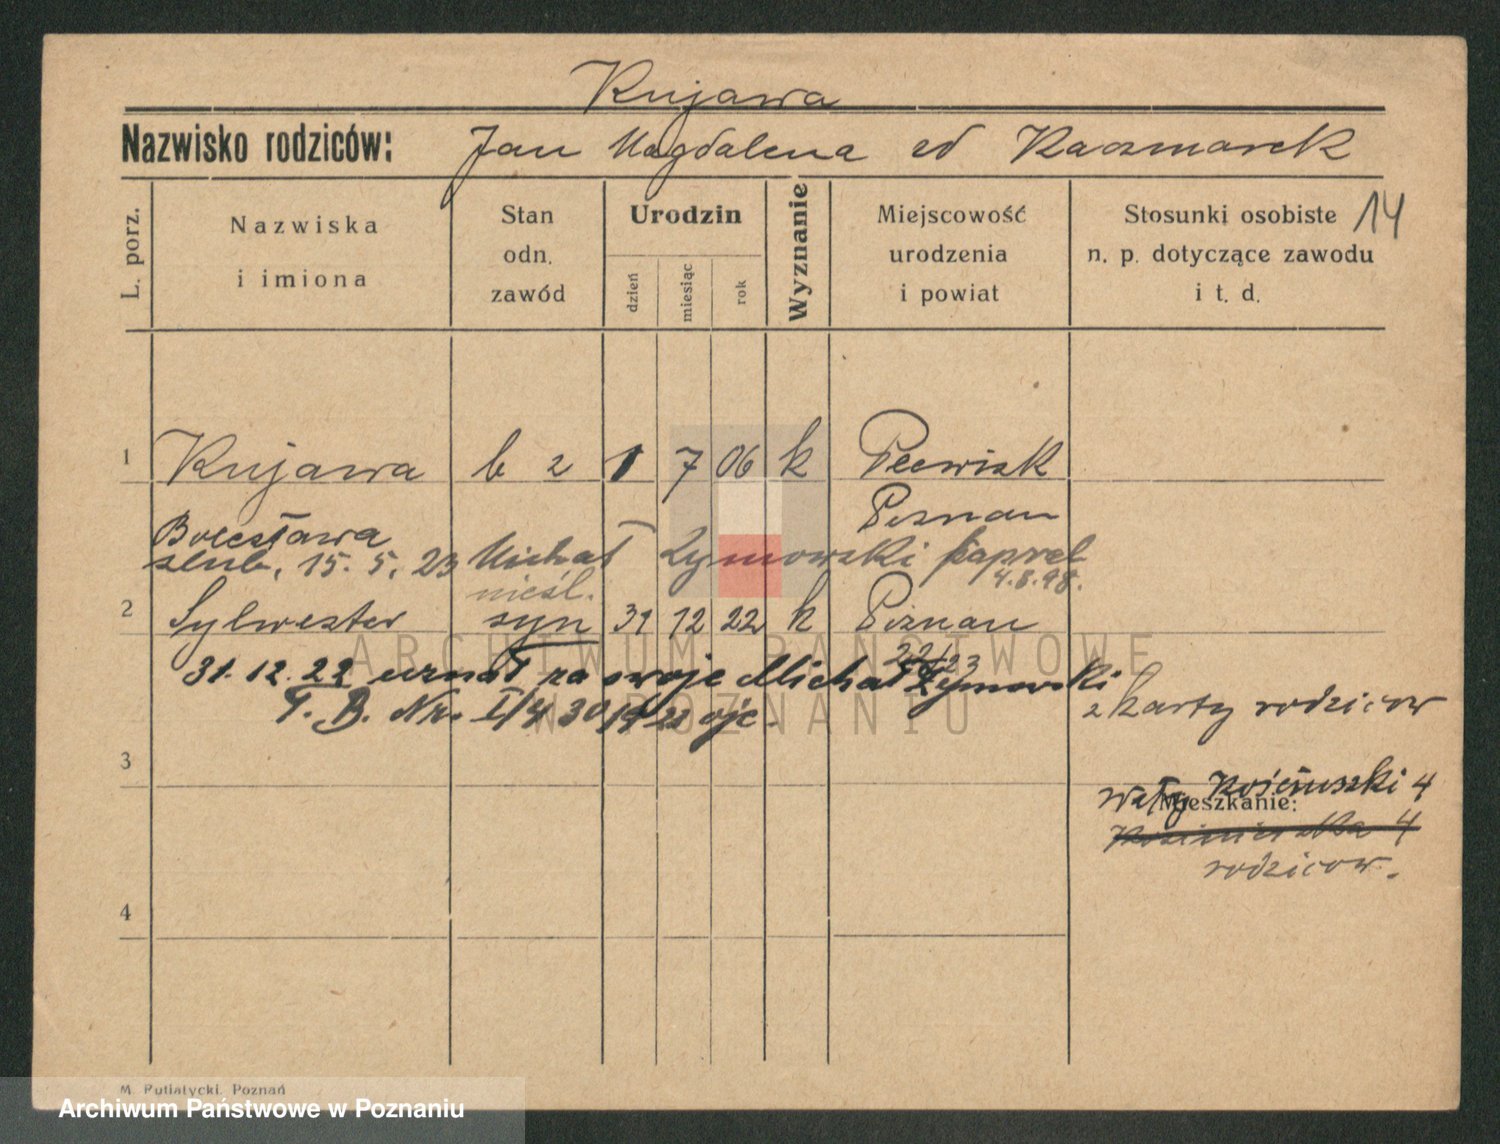 Kujawa
Nazwisko rodziców: Jan Magdalena ed Kaczmarek
L. porz.
Nazwiska i imiona
Stan odn. zawód
Urodzin
dzień
miesiąc
rok
Wyznanie
Miejscowość urodzenia i powiat
Stosunki osobiste n. p. dotyczące zawodu i t. d.
14
1 Kujawa b z 1 7 06 k Plewisk
Poznan
Bolesława
slub. 15. 5. 23 Michał Zymowski
4.8.98.
nieśl.
2 Sylwester syn 31 12 22 k Poznan
22/23
31.12.22 uznał za swoje Michał Zymowski
T. B. Nr. I/430/1923 ojc.
z karty rodzicow
3
wały Kościuszki 4
Mieszkanie:
4
rodzicow.
4
M. Putiatycki, Poznań
ARCHIWUM PAŃSTWOWE
W POZNANIU
Archiwum Państwowe w Poznaniu